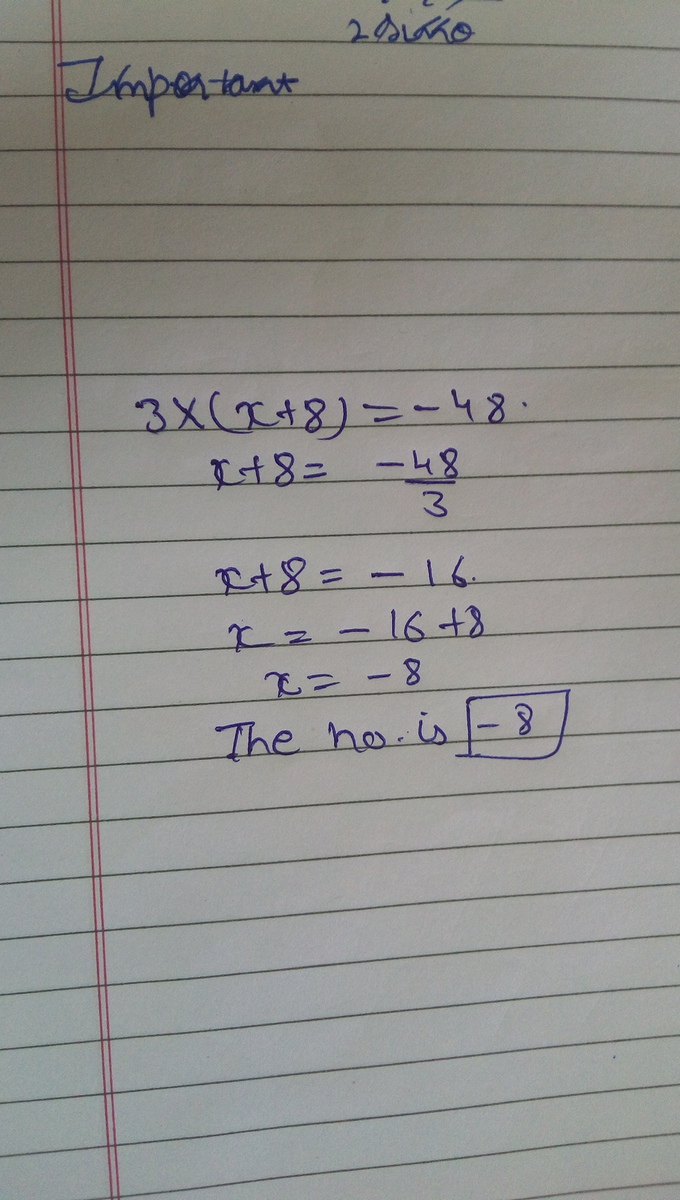 Important
3×(x+8) = -48.
x+8 = -48/3
x+8 = -16.
x = -16+8
x = -8
The no. is -8